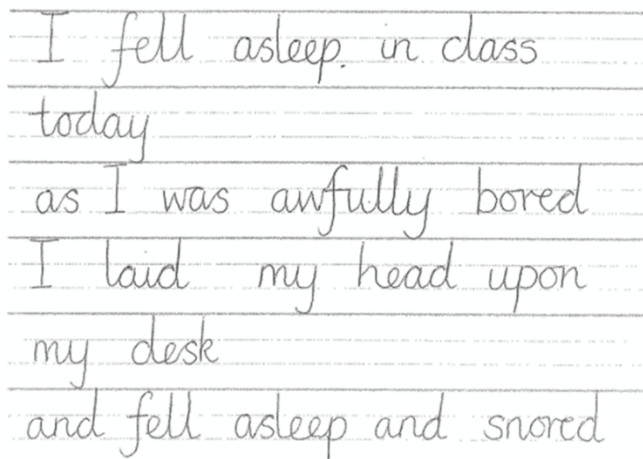 I fell asleep. in class
today
as I was awfully bored
I laid my head upon
my desk
and fell asleep and snored